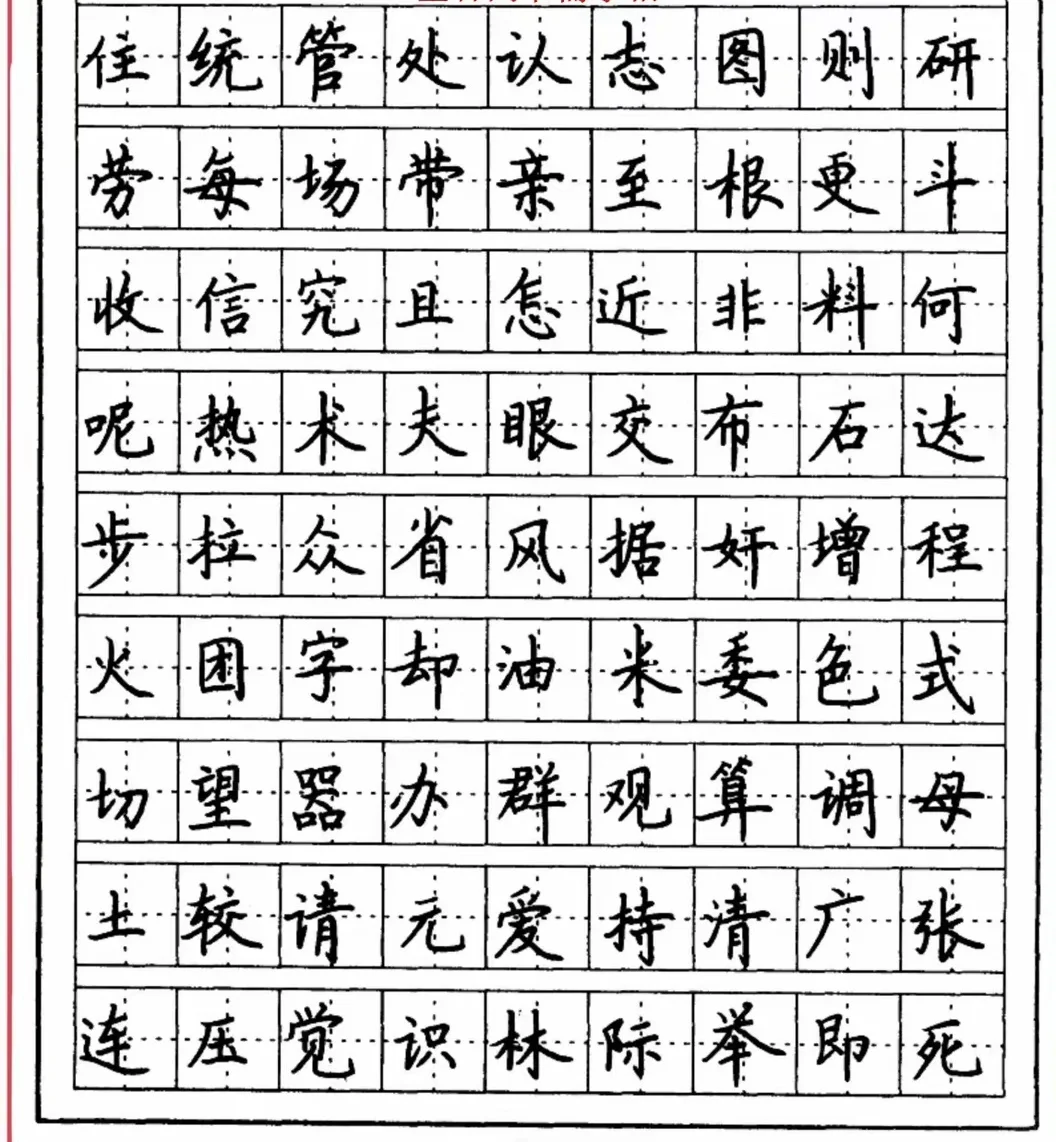 住统管处认志图则研
劳每场带亲至根更斗
收信究且怎近非料何
呢热术夫眼交布石达
步拉众省风据奸增程
火团字却油米委色式
切望器办群观算调母
土较请元爱持清广张
连压觉识林际举即死